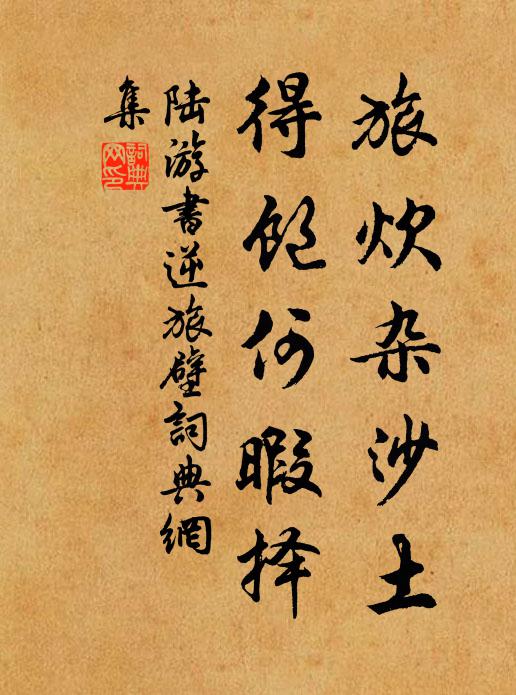 旅炊杂沙土
得饱何暇择
陆游书逆旅壁詞典網
集
詞典
网印